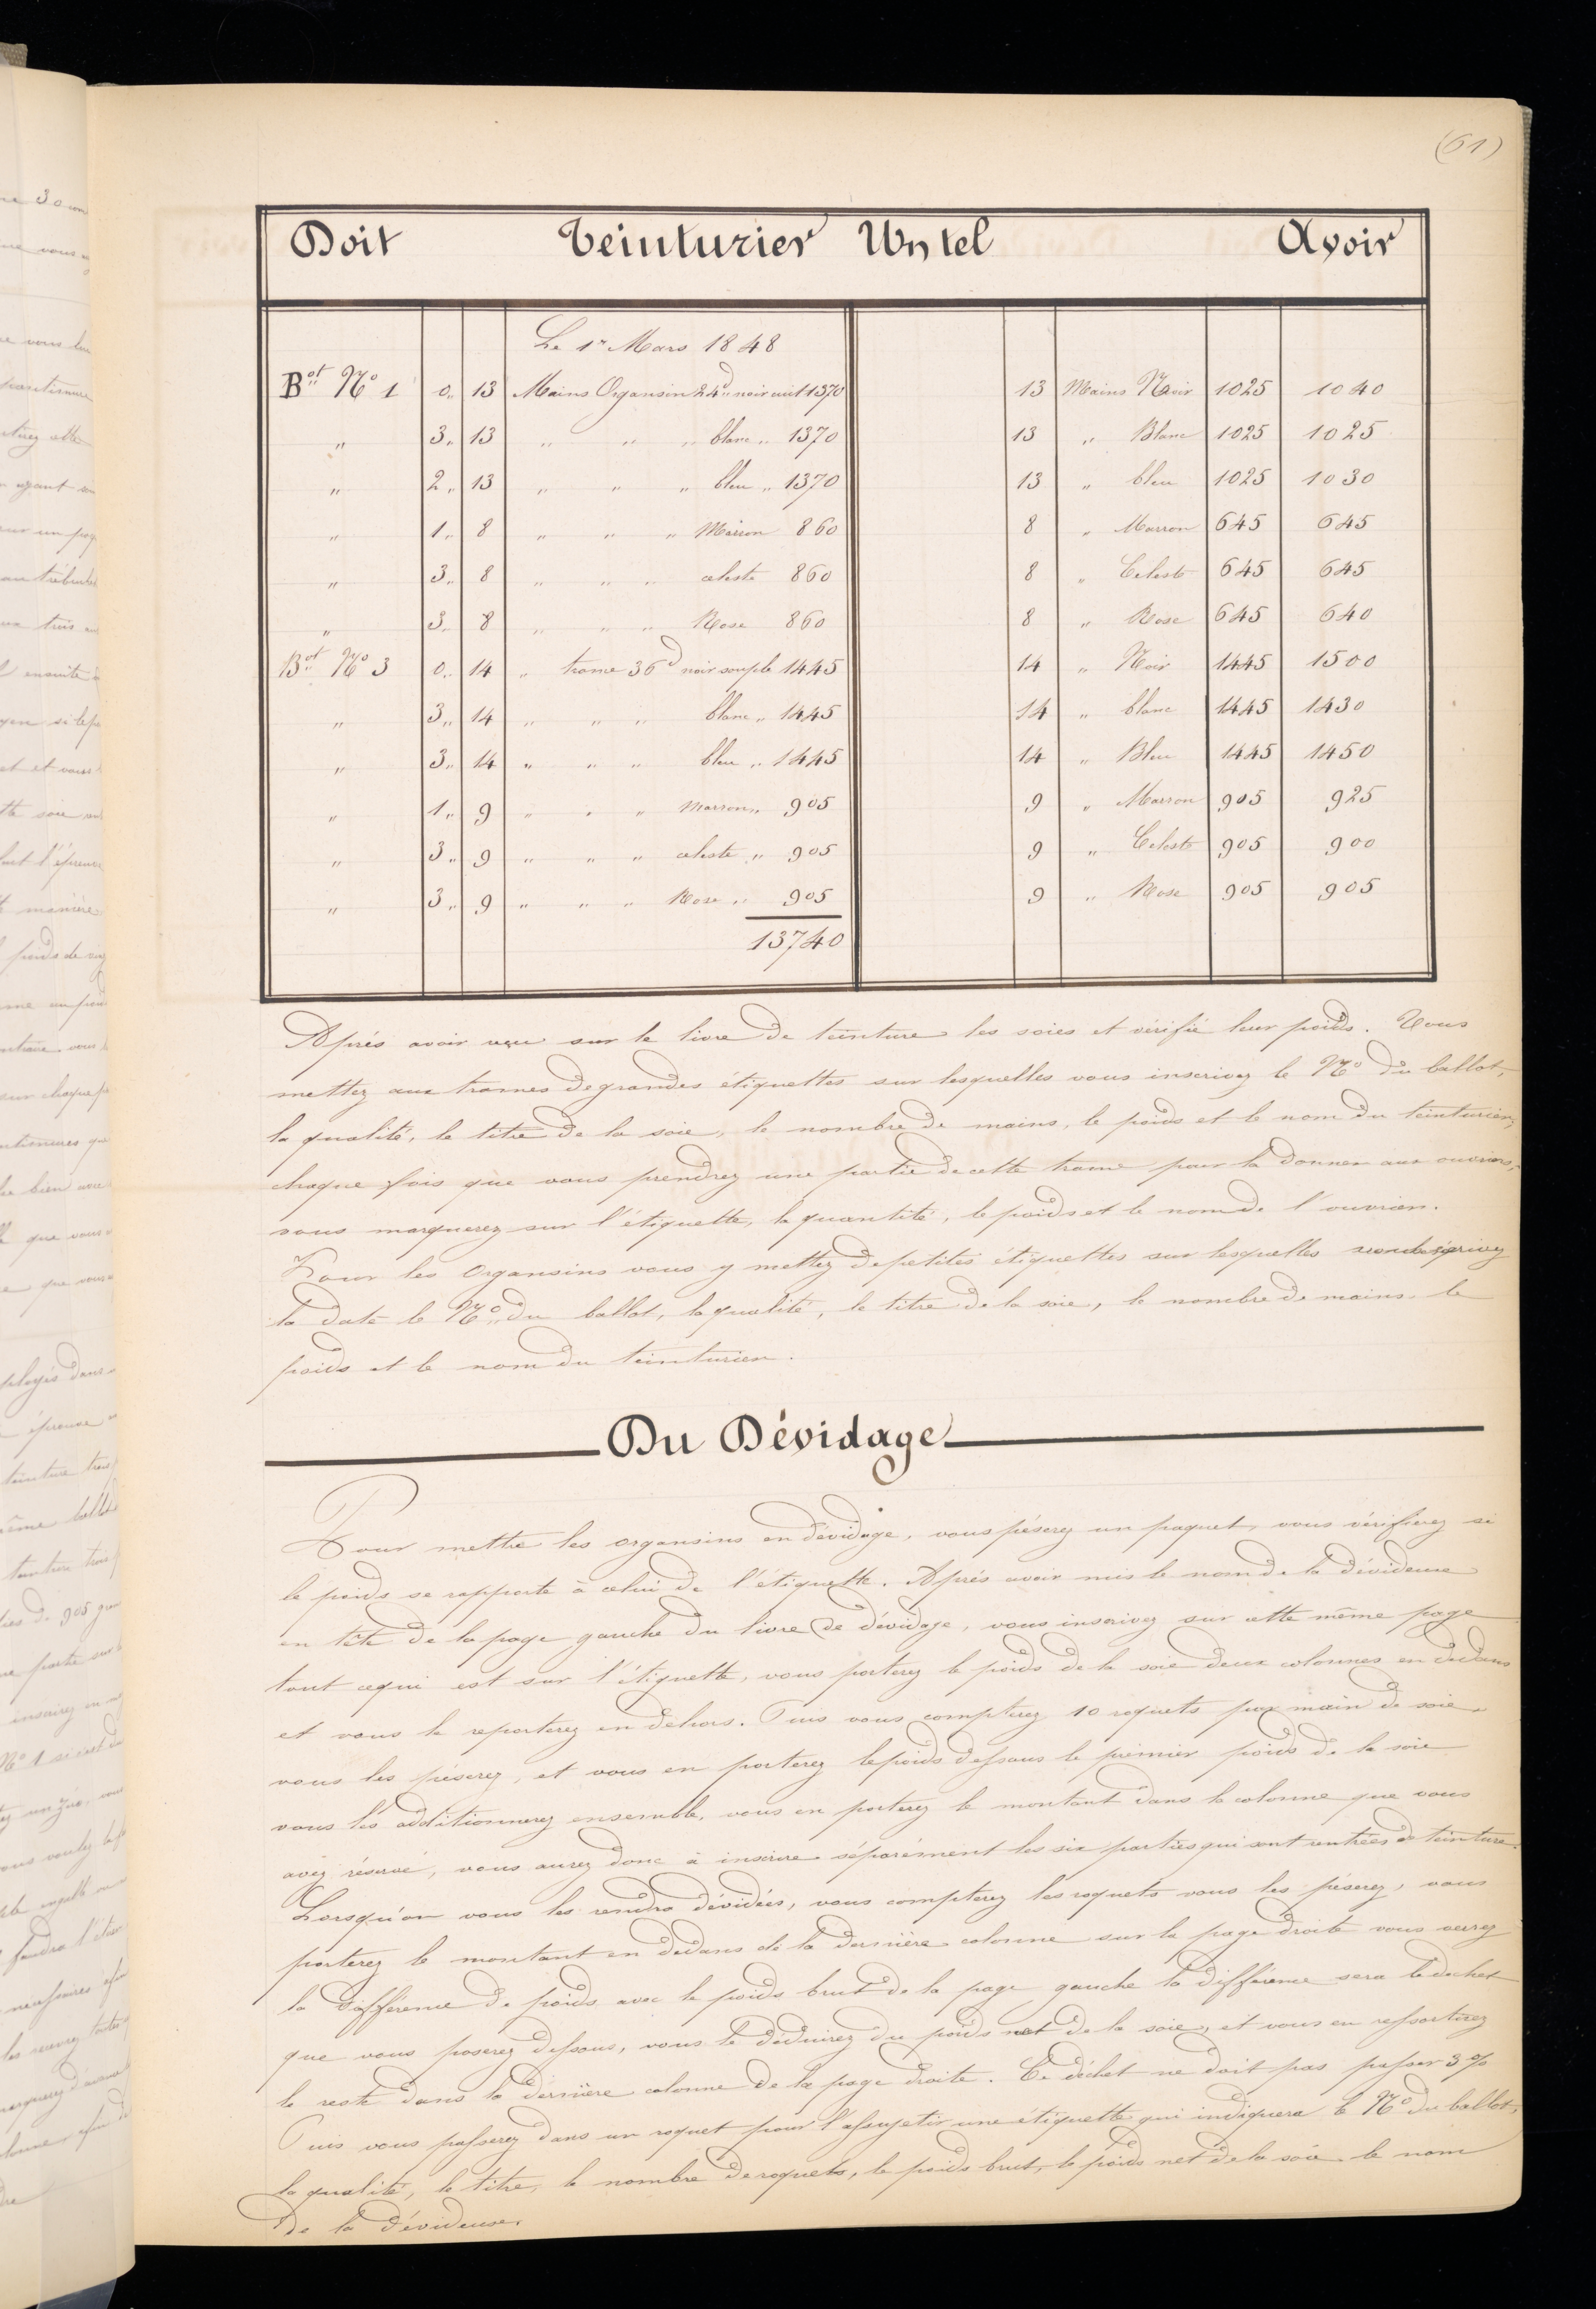 (61)
Doit Teinturier Un tel Avoir
Le 1r Mars 1848
Bot No 1 0,, 13 Mains Organsin 24d noir cuit 1370 13 Mains Noir 1025 1040
,, 3,, 13 ,, ,, ,, blanc ,, 1370 13 ,, Blanc 1025 1025
,, 2,, 13 ,, ,, ,, bleu ,, 1370 13 ,, bleu 1025 1030
,, 1,, 8 ,, ,, ,, Marron 860 8 ,, Marron 645 645
,, 3,, 8 ,, ,, ,, celeste 860 8 ,, Celeste 645 645
,, 3,, 8 ,, ,, ,, Rose 860 8 ,, Rose 645 640
Bot No 3 0,, 14 ,, trame 36d noir souple 1445 14 ,, Noir 1445 1500
,, 3,, 14 ,, ,, ,, blanc ,, 1445 14 ,, blanc 1445 1430
,, 3,, 14 ,, ,, ,, bleu ,, 1445 14 ,, Bleu 1445 1450
,, 1,, 9 ,, ,, ,, Marron ,, 905 9 ,, Marron 905 925
,, 3,, 9 ,, ,, ,, celeste ,, 905 9 ,, Celeste 905 900
,, 3,, 9 ,, ,, ,, Rose ,, 905 9 ,, Rose 905 905
13740
Aprés avoir reçu sur le livre de teinture les soies et vérifié leur poids. Vous
mettez aux trames de grandes étiquettes sur lesquelles vous inscrivez le No du ballot,
la qualité, le titre de la soie, le nombre de mains, le poids et le nom du teinturier,
chaque fois que vous prendrez une partie de cette trame pour la donner aux ouvriers,
vous marquerez sur l'étiquette, la quantité, le poids et le nom de l'ouvrier.
Pour les Organsins vous y mettez de petites étiquettes sur lesquelles
la date le No du ballot, la qualité, le titre de la soie, le nombre de mains le
poids et le nom du teinturier.
Du Dévidage
Pour mettre les organsins en dévidage, vous péserez un paquet, vous vérifierez si
le poids se rapporte à celui de l'étiquette. Aprés avoir mis le nom de la dévideuse
en tête de la page gauche du livre de dévidage, vous inscrivez sur cette même page
tout ce qui est sur l'étiquette, vous porterez le poids de la soie deux colonnes en dedans
et vous le reporterez en dehors. Puis vous compterez 10 roquets par main de soie,
vous les péserez, et vous en porterez le poids dessous le prémier poids de la soie
vous les additionnerez ensemble, vous en porterez le montant dans la colonne que vous
avez réservé, vous aurez donc à inscrire séparément les six parties qui sont rentrées de teinture.
Lorsqu'on vous les rendra dévidées, vous compterez les roquets vous les péserez, vous
porterez le montant en dedans de la dernière colonne sur la page droite vous aurez
la différence de poids avec le poids brut de la page gauche la différence sera le dechet
que vous poserez dessous, vous le déduirez du poids net de la soie, et vous en ressortirez
le reste dans la dernière colonne de la page droite. Ce déchet ne doit pas passer 3 %
Puis vous passerez dans un roquet pour l'assujetir une étiquette qui indiquera le No du ballot,
la qualité, le titre, le nombre de roquets, le poids brut, le poids net de la soie le nom
de la dévideuse.